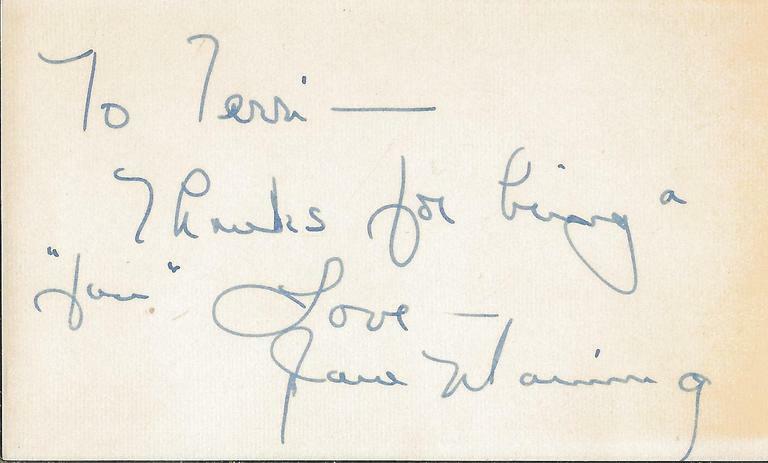 To Terri —
Thanks for being a
"fan" Love —
Jane